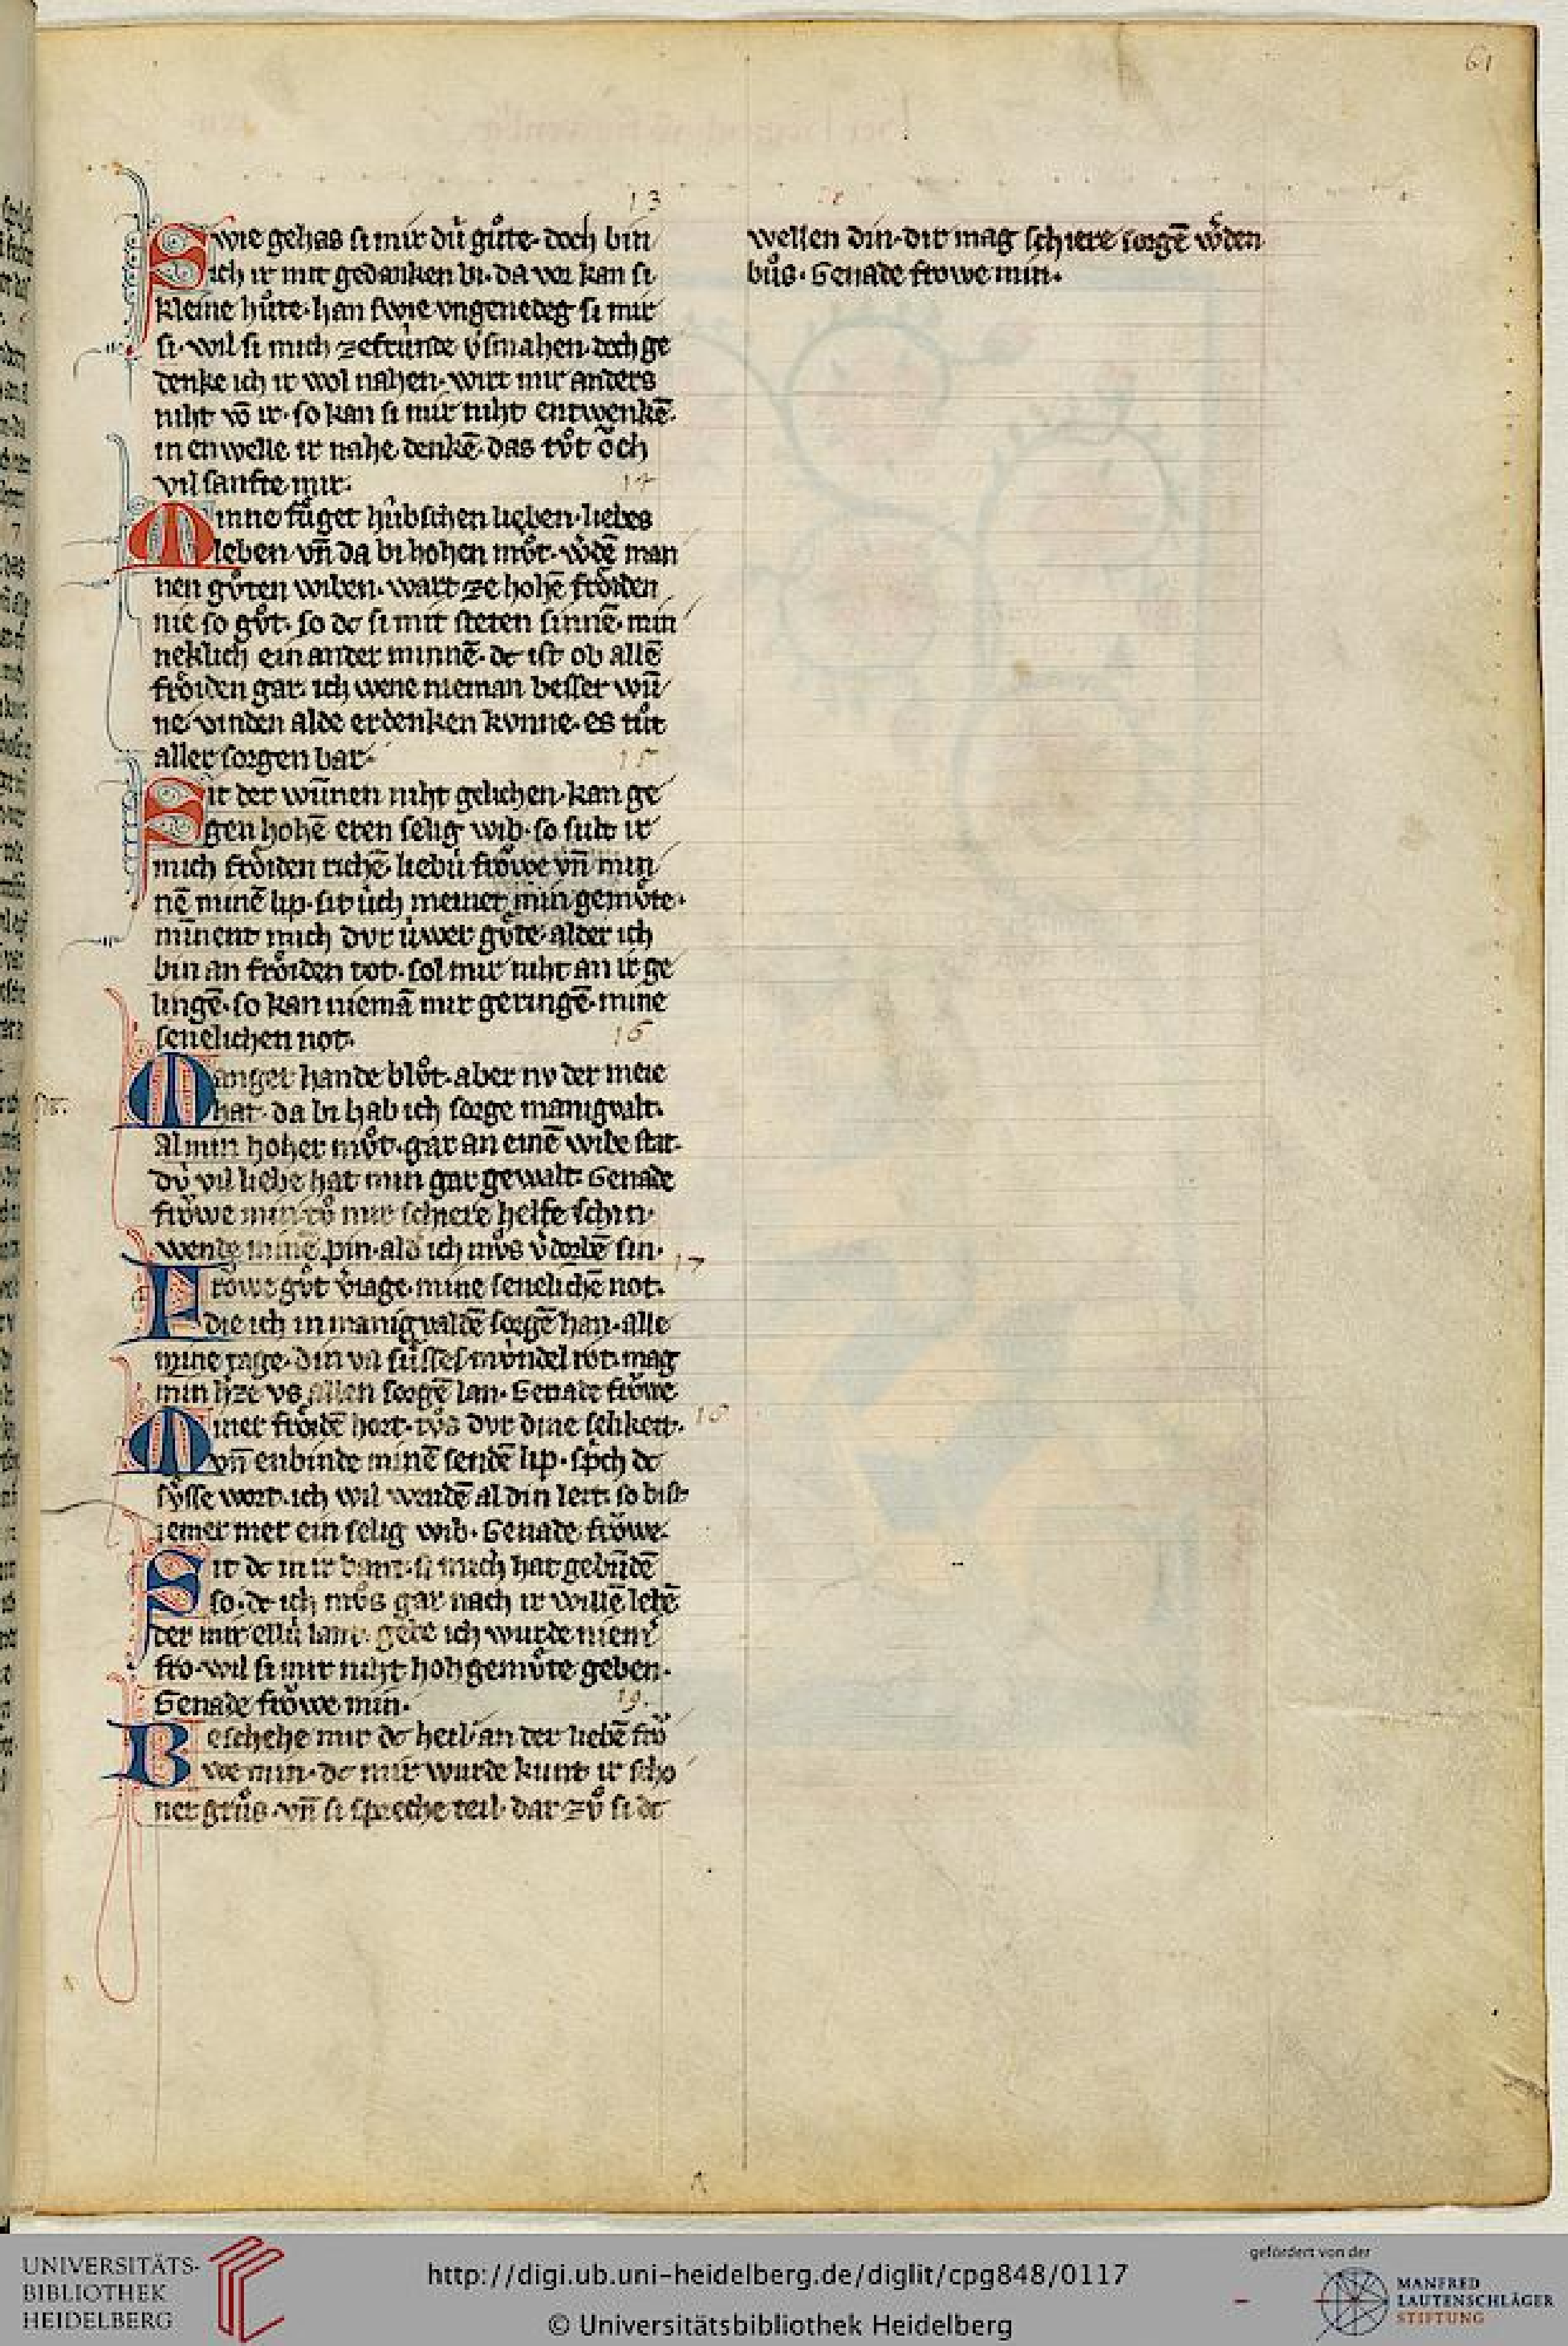 61
13
Swie gehas si mir dú guͦte· doch bin
ich ir mit gedanken bi· da vor kan si
kleine huͦte· han swie vngenedeg si mir
si· wil si mich ze frúnde v̓smahen· doch ge
denke ich ir wol nahen· wirt mir anders
niht vō ir· so kan si mir niht entwenkē·
in enwelle ir nahe denkē· das tvͦt oͮch
vil sanfte mir·
14
Minne fuͤget húbschen lieben· liebes
leben· vn̄ da bi hohen mvͦt· w̓dē man
nen gvͦten wiben· wart ze hohē froͤiden
nie so gvͦt· so dc si mit steten sinnē· min
neklich ein ander minnē· dc ist ob allē
froͤiden gar· ich wene nieman besser wū
ne vinden alde erdenken kvnne· es tuͦt
aller sorgen bar·
15
Sit der wūnen niht gelichen· kan ge
gen hohē eren selig wib· so sult ir
mich froͤiden richē· liebú froͮwe vn̄ min
nē minē lip· sit úch meinet min gemvͤte·
minent mich dvr úwer gvͤte· alder ich
bin an froͤiden tot· sol mir niht an ir ge
lingē· so kan niemā mir geringē· mine
senelichen not·
16
Manger hande blvͦt· aber nv der meie
hat· da bi hab ich sorge manigvalt·
Al min hoher mvͦt· gar an einē wibe stat·
dv́ vil liebe hat min gar gewalt· Genade
froͮwe min· tvͦ mir schiere helfe schin·
wende minē pin· ald ich mvͦs v̓dorbē sin·
17
Frowe gvͦt v̓iage· mine senelichē not·
die ich in manigvaldē sorgē han· alle
mine tage· din vil suͤsses mv́ndel rot· mag
min h̓ze vs allen sorgē lan· Genade froͮwe
18
Miner froͤidē hort· tvͦs dvr dine selikeit·
vn̄ enbinde minē sendē lip· sp̓ch dc
svͤsse wort· ich wil wendē al din leit· so bist
iemer mer ein selig wib· Genade froͮwe·
Sit dc in ir bant· si mich hat gebūdē
so· dc ich mvͦs gar nach ir willē lebē
der mir ellú lant· gebe ich wurde niem̓
fro· wil si mir niht hohgemvͤte geben·
Genade froͮwe min·
19.
Beschehe mir dc heil· an der liebē froͮ
we min· dc mir wurde kunt ir scho
ner gruͦs· vn̄ si spreche teil· dar zvͦ si dc
wellen din· dir mag schiere sorgē w̓den
buͦs· Genade frowe min·
UNIVERSITÄTS-
BIBLIOTHEK
HEIDELBERG
http://digi.ub.uni-heidelberg.de/diglit/cpg848/0117
© Universitätsbibliothek Heidelberg
gefördert von der
MANFRED
LAUTENSCHLÄGER
STIFTUNG